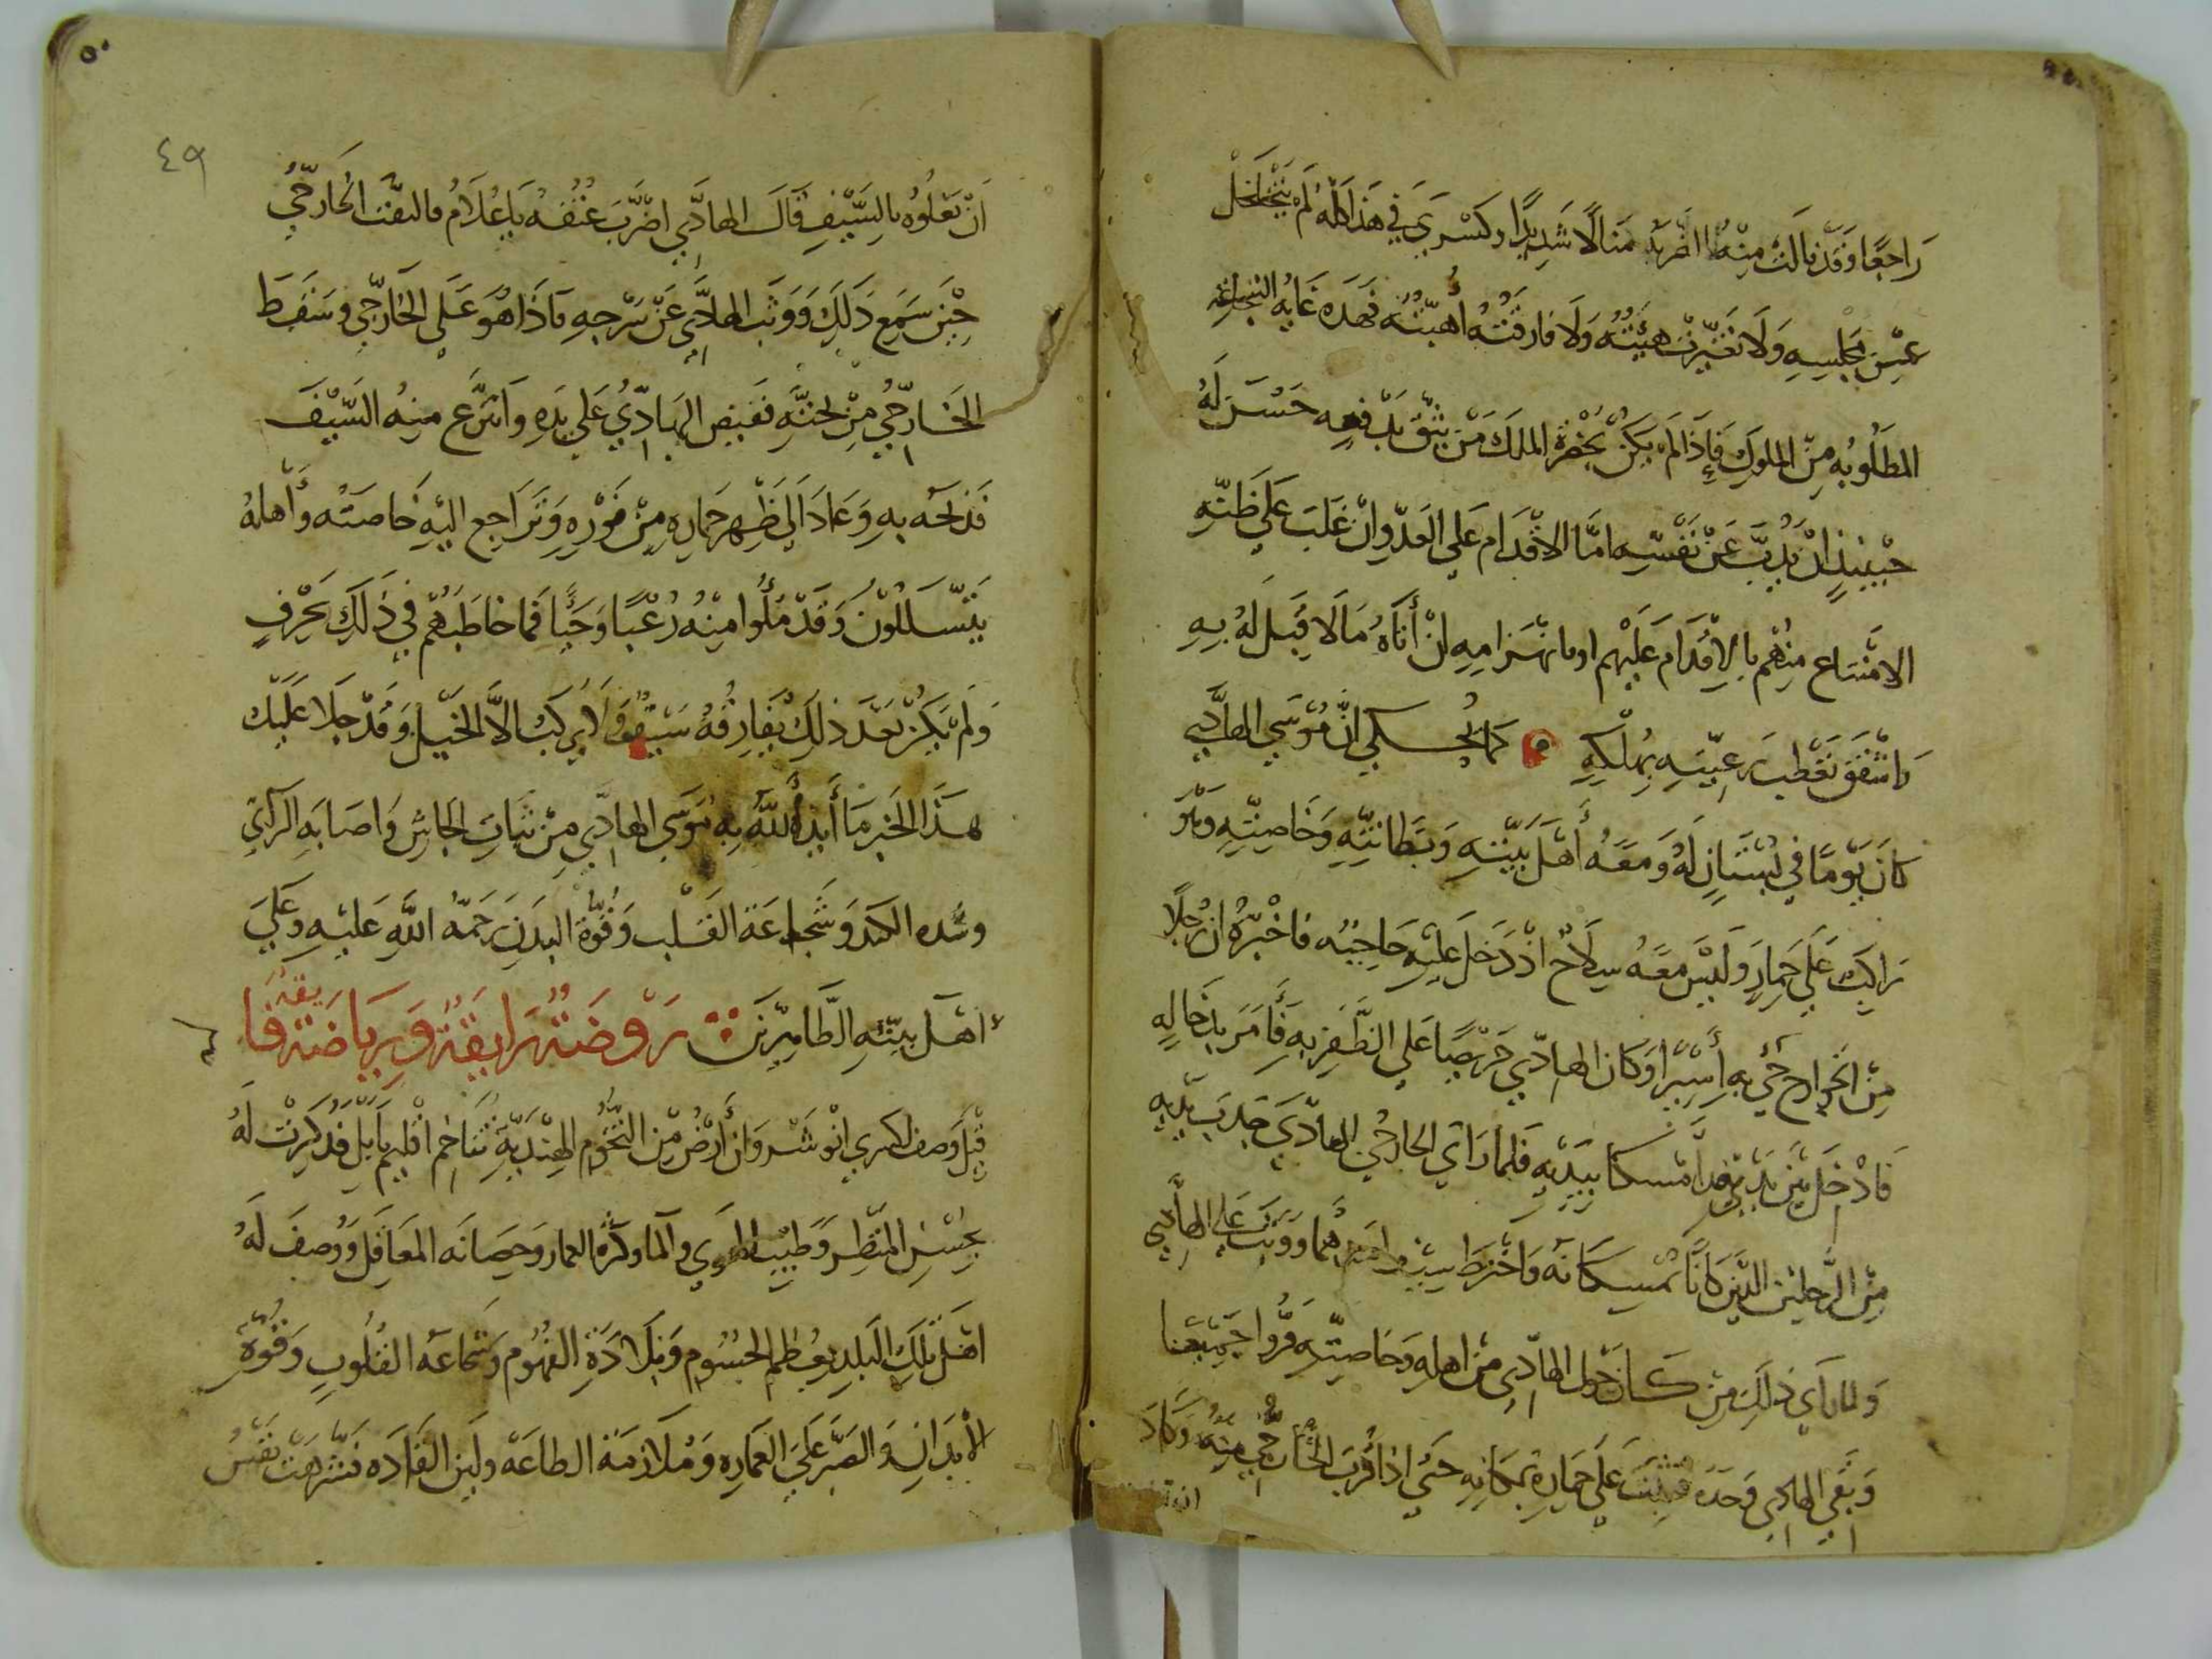 راجعا وقد نالت منه الضربة منالا شديدا وكسري في هذا كله لم يتخلخل
عن مجلسه ولا تغيرت هيئته ولا فارقته أهبته فهذه غاية الشجاعة
المطلوبه من الملوك فإذا لم يكن بحضرة الملك من يثق بدفعه حسن له
حينئذ ان يذب عن نفسه اما الاقدام على العدو ان غلب على ظنه
الامتناع منهم بالاقدام عليهم او بانهزامه ان أتاه ما لا قبل له به
رعيته بملكه كما يحكى ان موسي الهادي
كان يوما في بستان له ومعه أهل بيته وبطانته وخاصيته وهو
راكب على حمار وليس معه سلاح اذ دخل عليه حاجبه فاخبره ان رجلا
من الخوارج جي به أسيرا وكان الهادي حريصا على الظفر به فأمر بادخاله
فادخل بين يديه قد أمسكا بيديه فلما رأي الخارجي الهادي جذب يديه
من الرجلين الذين كانا يمسكانه واخترط سيف احدهما ووثب على الهادي
ولما رأي ذلك من كان حول الهادي من اهله وخاصيته فروا جميعا
وبقي الهادي وحده فثبت على حماره بمكانه حتى اذا قرب الخارجي منه وكاد
ان
٥٠
٤٩
ان يعلوه بالسيف قال الهادي اضرب عنقه يا غلام فالتفت الخارجي
حين سمع ذلك ووثب الهادي عن سرجه فاذا هو على الخارجي وسقط
الخارجي من تحته فقبض الهادي على يده وانتزع منه السيف
فذبحه به وعاد الى ظهر حماره من فوره وتراجع اليه خاصته وأهله
يتسللون وقد ملوا منه رعبا وحيا فما خاطبهم في ذلك بحرف
ولم يكن بعد ذلك يفارقه سيفه ولا يركب الا الخيل وقد جلا عليك
هذا الخبر ما أيد الله به موسي الهادي من ثبات الجاش واصابه الراي
وشده الكيد وشجاعة القلب وقوة البدن رحمة الله عليه وعلى
اهل بيته الطاهرين روضة رايقة ورياضة فايقة
قيل وصف لكسري انوشروان أرض من التخوم الهندية تتاخم اقليم بابل فذكرت له
بحسن المنظر وطيب الهوي والما وكثرة العمار وحصانه المعاقل ووصف له
اهل تلك البلد بعظم الجسوم وبلادة الفهوم وشجاعه القلوب وقوة
الابدان والصبر على العماره وملازمة الطاعة ولين القاده فشرهت نفس